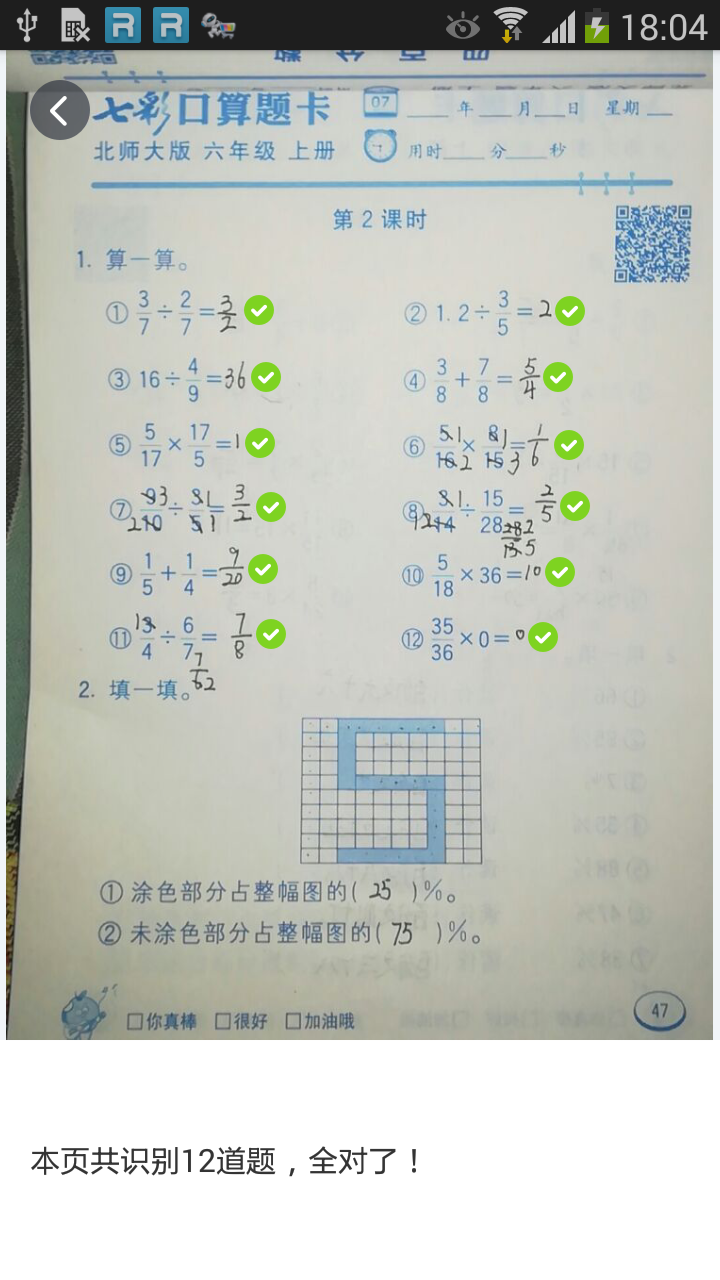 18:04
七彩口算题卡 07 ___年___月___日 星期___
北师大版 六年级 上册 用时___分___秒
第2课时
1. 算一算。
① 3/7 ÷ 2/7 = 3/2 ② 1.2 ÷ 3/5 = 2
③ 16 ÷ 4/9 = 36 ④ 3/8 + 7/8 = 5/4
⑤ 5/17 × 17/5 = 1 ⑥ 5/16 × 8/15 = 1/6
⑦ 9/10 ÷ 3/5 = 3/2 ⑧ 3/14 ÷ 15/28 = 2/5
⑨ 1/5 + 1/4 = 9/20 ⑩ 5/18 × 36 = 10
⑪ 3/4 ÷ 6/7 = 7/8 ⑫ 35/36 × 0 = 0
2. 填一填。
① 涂色部分占整幅图的( 25 )%。
② 未涂色部分占整幅图的( 75 )%。
□你真棒 □很好 □加油哦 47
本页共识别12道题，全对了！